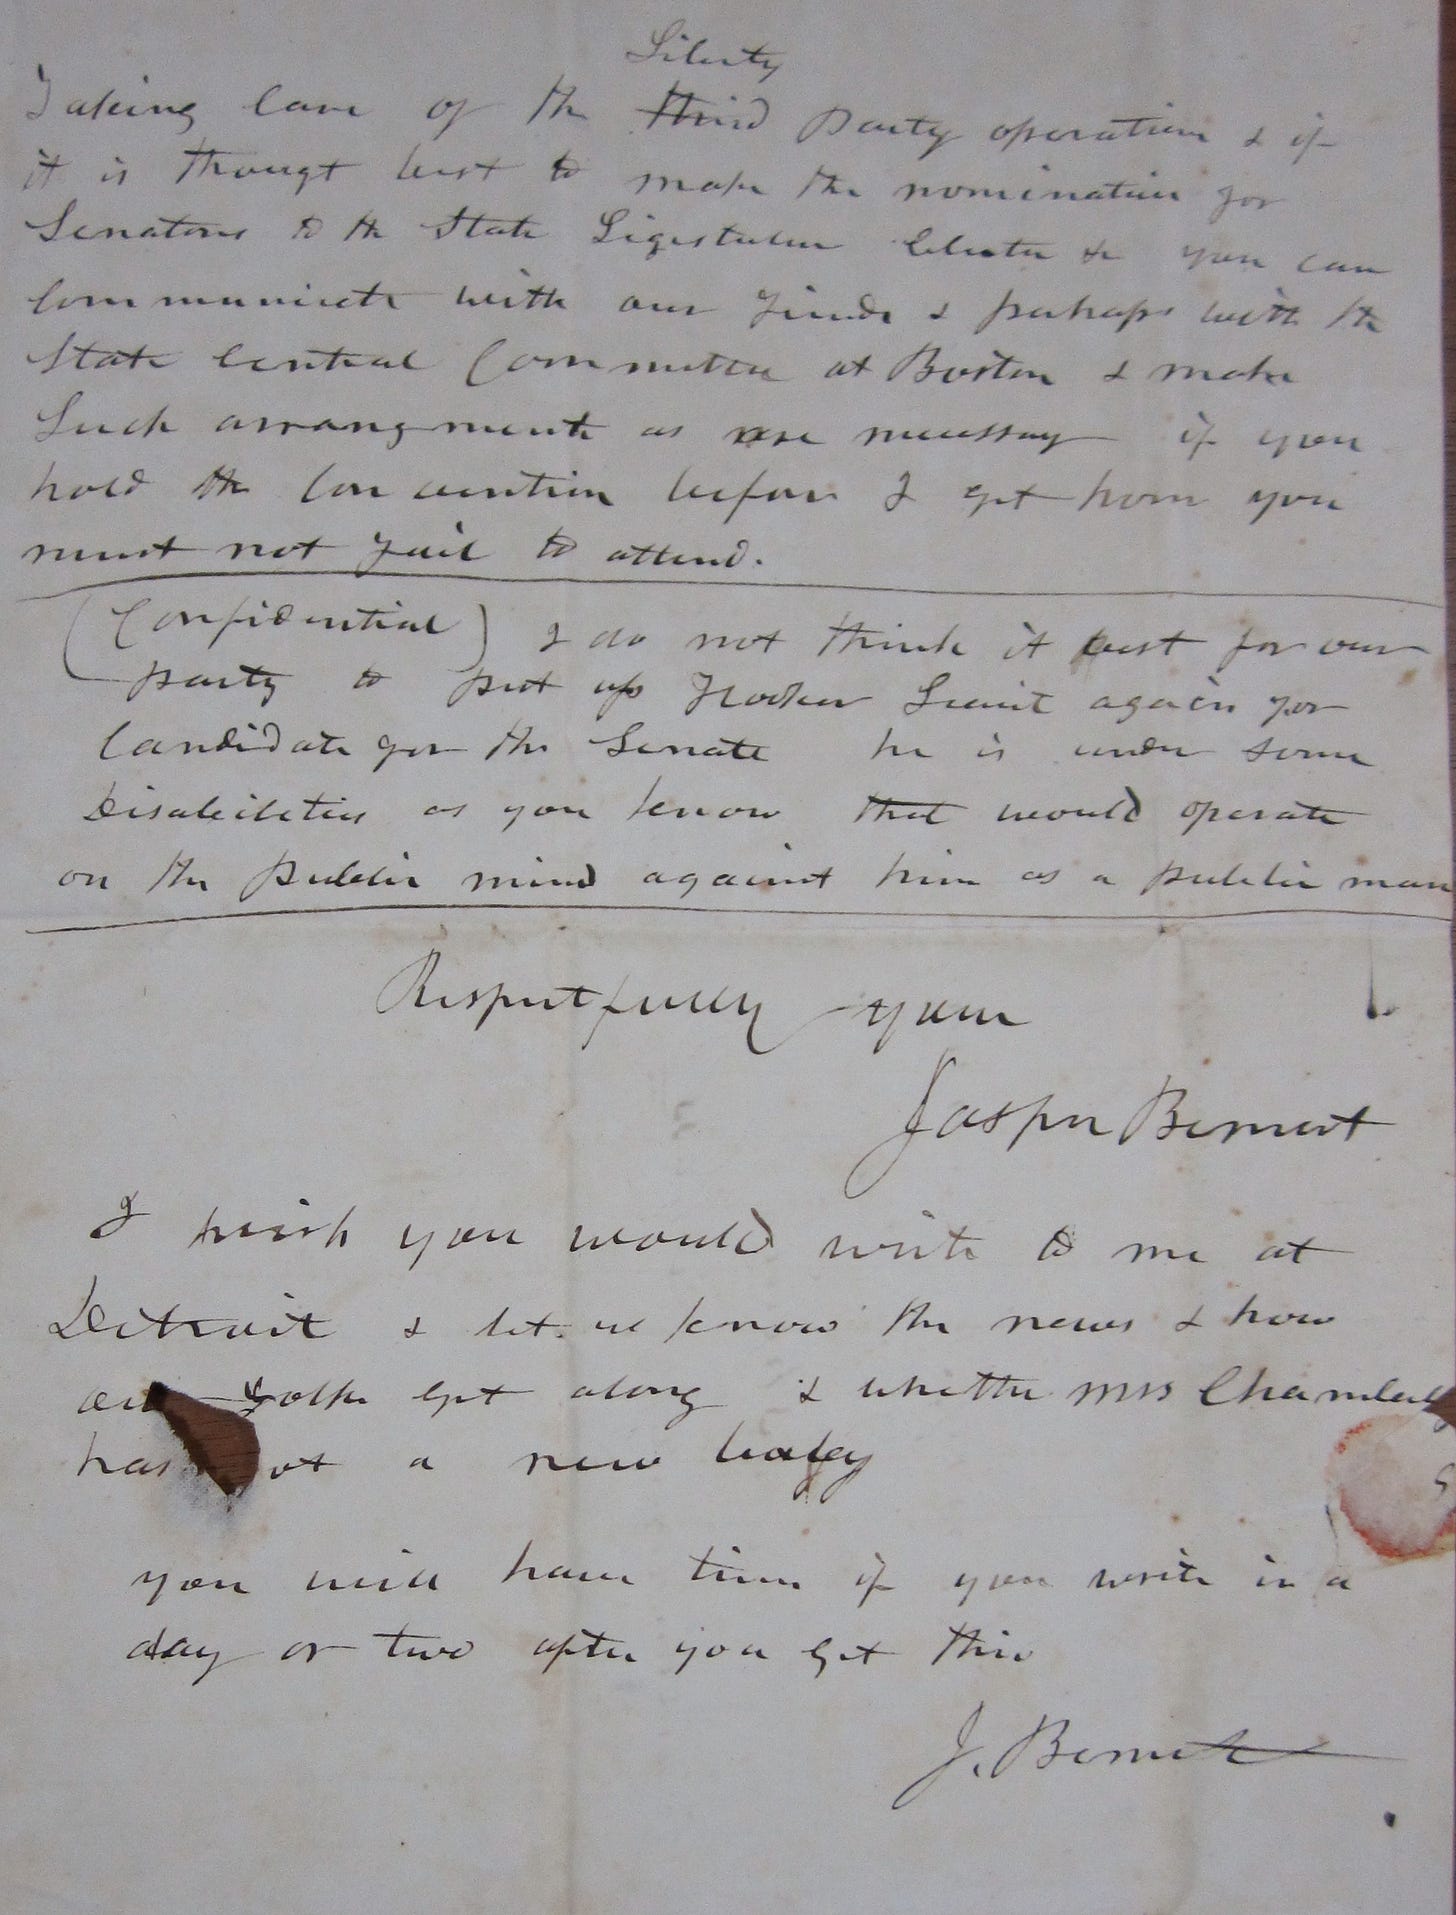 Liberty
Taking Care of the third Party operation & if
it is thougt best to make the nomination for
Senators to the State Ligestulur &c you can
Communicate with our frinds & perhaps with the
State Central Committee at Boston & make
Such arrangments as are necessary if you
hold the Convention before I get hom you
must not fail to attend.
(Confidential) I do not think it best for our
party to put up again for
Candidate for the Senate he is under some
Disabilities as you know that would operate
on the public mind against him as a public man
Respectfully yours
Jasper Bement
I wish you would write to me at
Detroit & let us know the news & how
our folks get along & whether Mrs Chamberly
has got a new baby
you will have time if you write in a
day or two after you get this
J. Bement